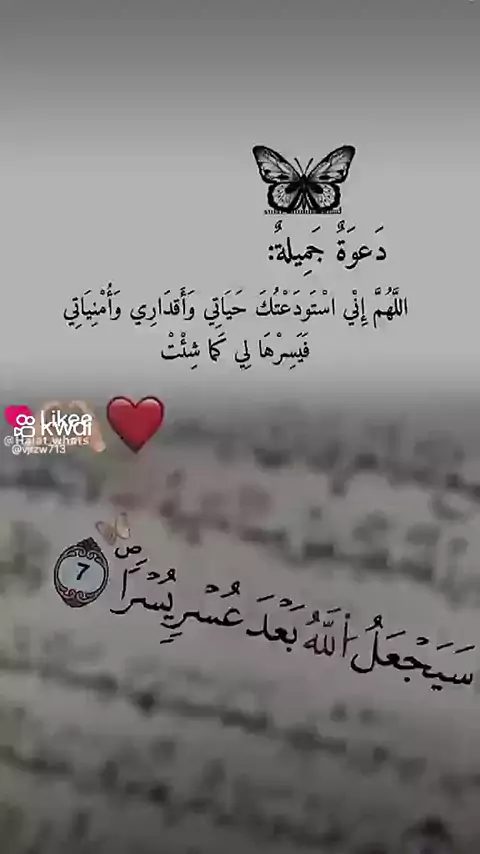 دَعوَةٌ جَمِيلةٌ:
اللَّهُمَّ إِنِّي اسْتَودَعْتُكَ حَيَاتِي وَأَقدَارِي وَأُمْنِيَاتِي
فَيَسِرْهَا لِي كَمَا شِئْتْ
Likee
Kwai
@Halat_whats
@vjrzw713
سَيَجْعَلُ اللَّهُ بَعْدَ عُسْرٍ يُسْرًا 7